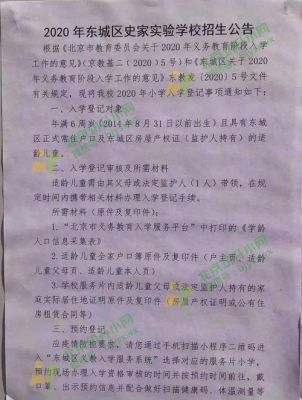 2020 年东城区史家实验学校招生公告
根据《北京市教育委员会关于 2020 年义务教育阶段入学
工作的意见》(京教基二〔2020〕5 号)和《东城区关于 2020
年义务教育阶段入学工作的意见》东教发〔2020〕5 号文件
有关规定,现将我校 2020 年小学入学登记事项通知如下:
一、入学登记对象
年满 6 周岁(2014 年 8 月 31 日以前出生)且具有东城
区正式常住户口及东城区房屋产权证(监护人持有)的适
龄儿童。
二、入学登记审核及所需材料
适龄儿童需由其父母或法定监护人(1 人)带领,在规
定时间内携带相关材料办理入学登记手续。
所需材料(原件及复印件):
1、“北京市义务教育入学服务平台”中打印的《学龄
人口信息采集表》
2.适龄儿童全家户口簿原件及复印件(户主页、适龄
儿童父母页、适龄儿童本人页)
3.学校服务片内适龄儿童父母或法定监护人持有的家
庭实际居住地证明原件及复印件(房屋产权证明或公有住
房租赁合同等)
三、预约登记
应疫情防控要求,请您通过手机扫描小程序二维码进
入“东城区义教入学服务系统”选择对应的服务片小学,
预约现场办理入学资格审核的时间并按预约时间前往,戴
口罩、出示预约信息并配合做好扫描健康码、体温测量等